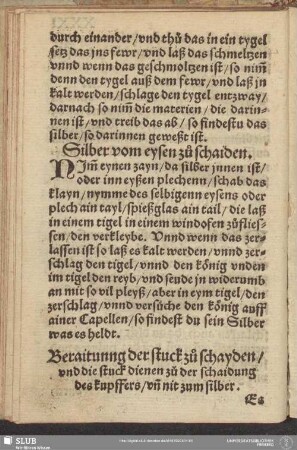 durch einander/vnd thů das in ein tygel
setz das jns fewr/vnd laß das schmeltzen
vnnd wenn das geschmoltzen ist/so nim̃
denn den tygel auß dem fewr/vnd laß jn
kalt werden/schlage den tygel entzway/
darnach so nim̃ die materien/die darin-
nen ist/vnd treib das ab/so findestu das
silber/so darinnen geweßt ist.
Silber vom eysen zů schaiden.
NIm̃ eynen zayn/da silber jnnen ist/
oder inn eyßen plechenn/schab das
klayn/nymme des selbigenn eysens oder
plech ain tayl/spießglas ain tail/die laß
in einem tigel in einem windofen zůflies-
sen/den verkleybe. Vnnd wenn das zer-
lassen ist so laß es kalt werden/vnnd zer-
schlag den tigel/vnnd den könig vnden
im tigel den reyb/vnd seude jn widerumb
an mit so vil pleyß/aber in eym tigel/den
zerschlag/vnnd versůche den könig auff
ainer Capellen/so findest du sein Silber
was es heldt.
Beraitunng der stuck zů schayden/
vnd die stuck dienen zů der schaidung
des kupffers/vñ nit zum silber.
SLUB
Wir führen Wissen.
UNIVERSITÄTSBIBLIOTHEK
FREIBERG